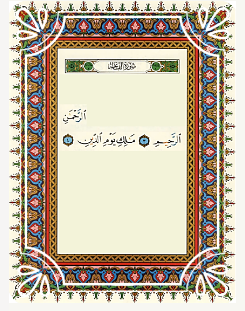 سورة الفاتحة
الرَّحْمَٰنِ
الرَّحِيمِ ٣ مَالِكِ يَوْمِ الدِّينِ ٤